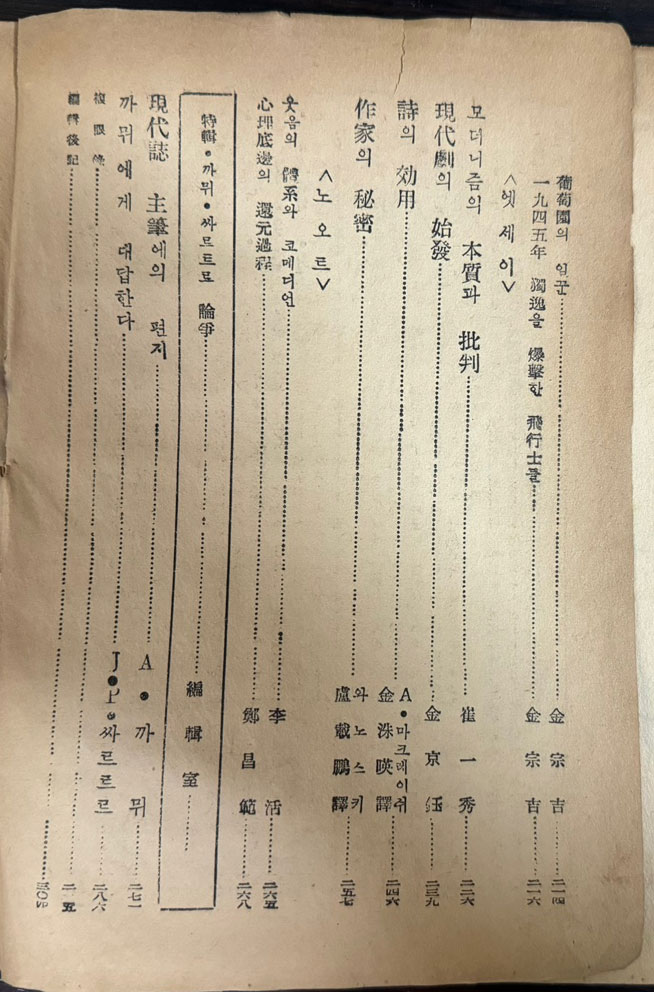 葡萄園의 일꾼……金宗吉……二一四
一九四五年 獨逸을 爆擊한 飛行士들……金宗吉……二一六
<엣세이>
모더니즘의 本質과 批判……崔一秀……二二六
現代劇의 始發……金京鈺……二三九
詩의 効用……A•마크레이쉬 金洙暎譯……二四六
作家의 秘密……와노스키 盧鵬譯……二五七
<노오트>
웃음의 體系와 코메디언……李活……二六五
心理底邊의 還元過程……鄭昌範……二六八
特輯•까뮈•싸르트르 論爭……編輯室……
現代誌 主筆에의 편지……A•까뮈……二七一
까뮈에게 대답한다……J•P•싸르르르……二八六
複眼……
編輯後記……